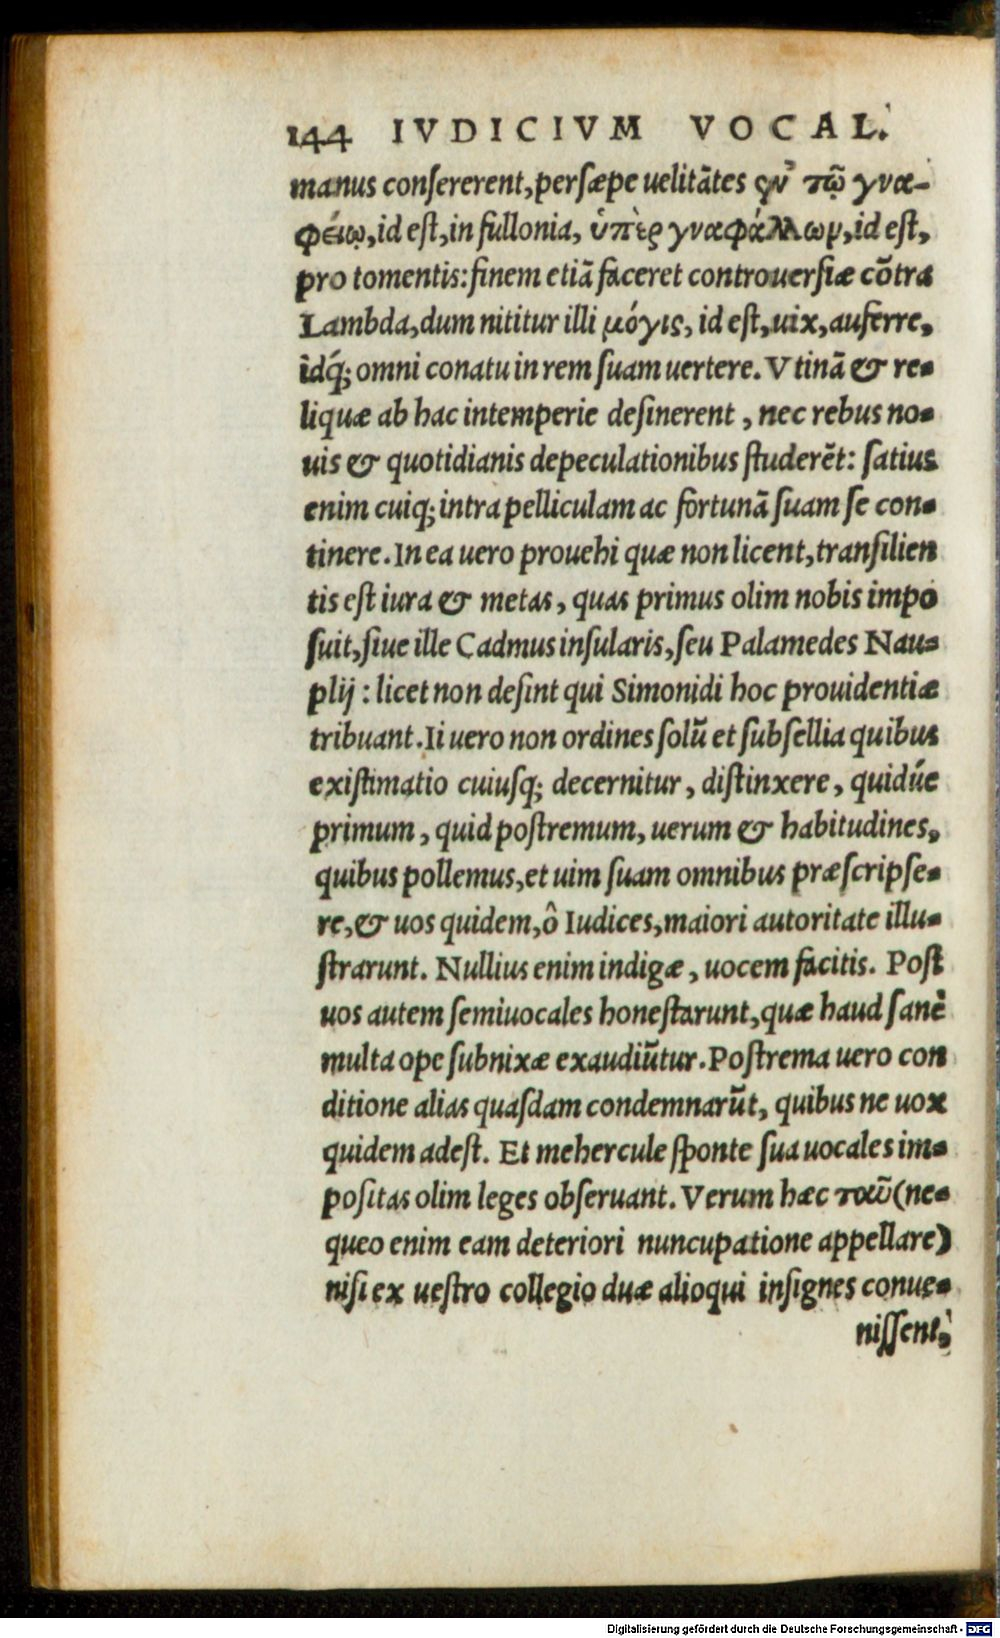 144 IVDICIVM VOCAL.
manus conſererent, perſæpe uelitātes ἐν τῷ γνα-
φείῳ, id eſt, in fullonia, ὑπὲρ γναφάλλων, id eſt,
pro tomentis: finem etiā faceret controuerſiæ cōtra
Lambda, dum nititur illi μόγις, id eſt, uix, auferre,
idq́; omni conatu in rem ſuam uertere. Vtinā & re-
liquæ ab hac intemperie deſinerent, nec rebus no-
uis & quotidianis depeculationibus ſtuderēt: ſatius
enim cuiq; intra pelliculam ac fortunā ſuam ſe con-
tinere. In ea uero prouehi quæ non licent, tranſilien
tis eſt iura & metas, quas primus olim nobis impo
ſuit, ſiue ille Cadmus inſularis, ſeu Palamedes Nau-
plij: licet non deſint qui Simonidi hoc prouidentiæ
tribuant. Ii uero non ordines ſolū et ſubſellia quibus
exiſtimatio cuiuſq; decernitur, diſtinxere, quidúe
primum, quid poſtremum, uerum & habitudines,
quibus pollemus, et uim ſuam omnibus præſcripſe-
re, & uos quidem, ô Iudices, maiori autoritate illu-
ſtrarunt. Nullius enim indigæ, uocem facitis. Poſt
uos autem ſemiuocales honeſtarunt, quæ haud ſanè
multa ope ſubnixæ exaudiūtur. Poſtrema uero con
ditione alias quaſdam condemnarūt, quibus ne uox
quidem adeſt. Et mehercule ſponte ſua uocales im-
poſitas olim leges obſeruant. Verum hæc ταῦ (ne-
queo enim eam deteriori nuncupatione appellare)
niſi ex ueſtro collegio duæ alioqui inſignes conue-
niſſent,
Digitalisierung gefördert durch die Deutsche Forschungsgemeinschaft - DFG